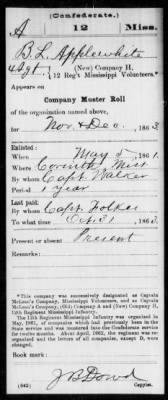 (Confederate.)
A 12 Miss.
B. L. Applewhite
4 Sgt., (New) Company H,
12 Reg't Mississippi Volunteers.*
Appears on
Company Muster Roll
of the organization named above,
for Nov & Dec, 1863
Enlisted:
When May 5, 1861
Where Corinth Miss
By whom Capt. Walker
Period 1 year
Last paid:
By whom Capt.
To what time Oct. 31, 1863.
Present or absent Present
Remarks:
*This company was successively designated as Captain
Company (New) H,
12th Regiment Mississippi Infantry.
The 12th Regiment Mississippi Infantry was organized in
May, 1861, of companies which had previously been in the
State service and was mustered into the Confederate service
for one year. About April, 1862, the regiment was re-
organized and the letters of all companies, except D, were
changed.
Book mark:
J B Dowd
(642) Copyist.